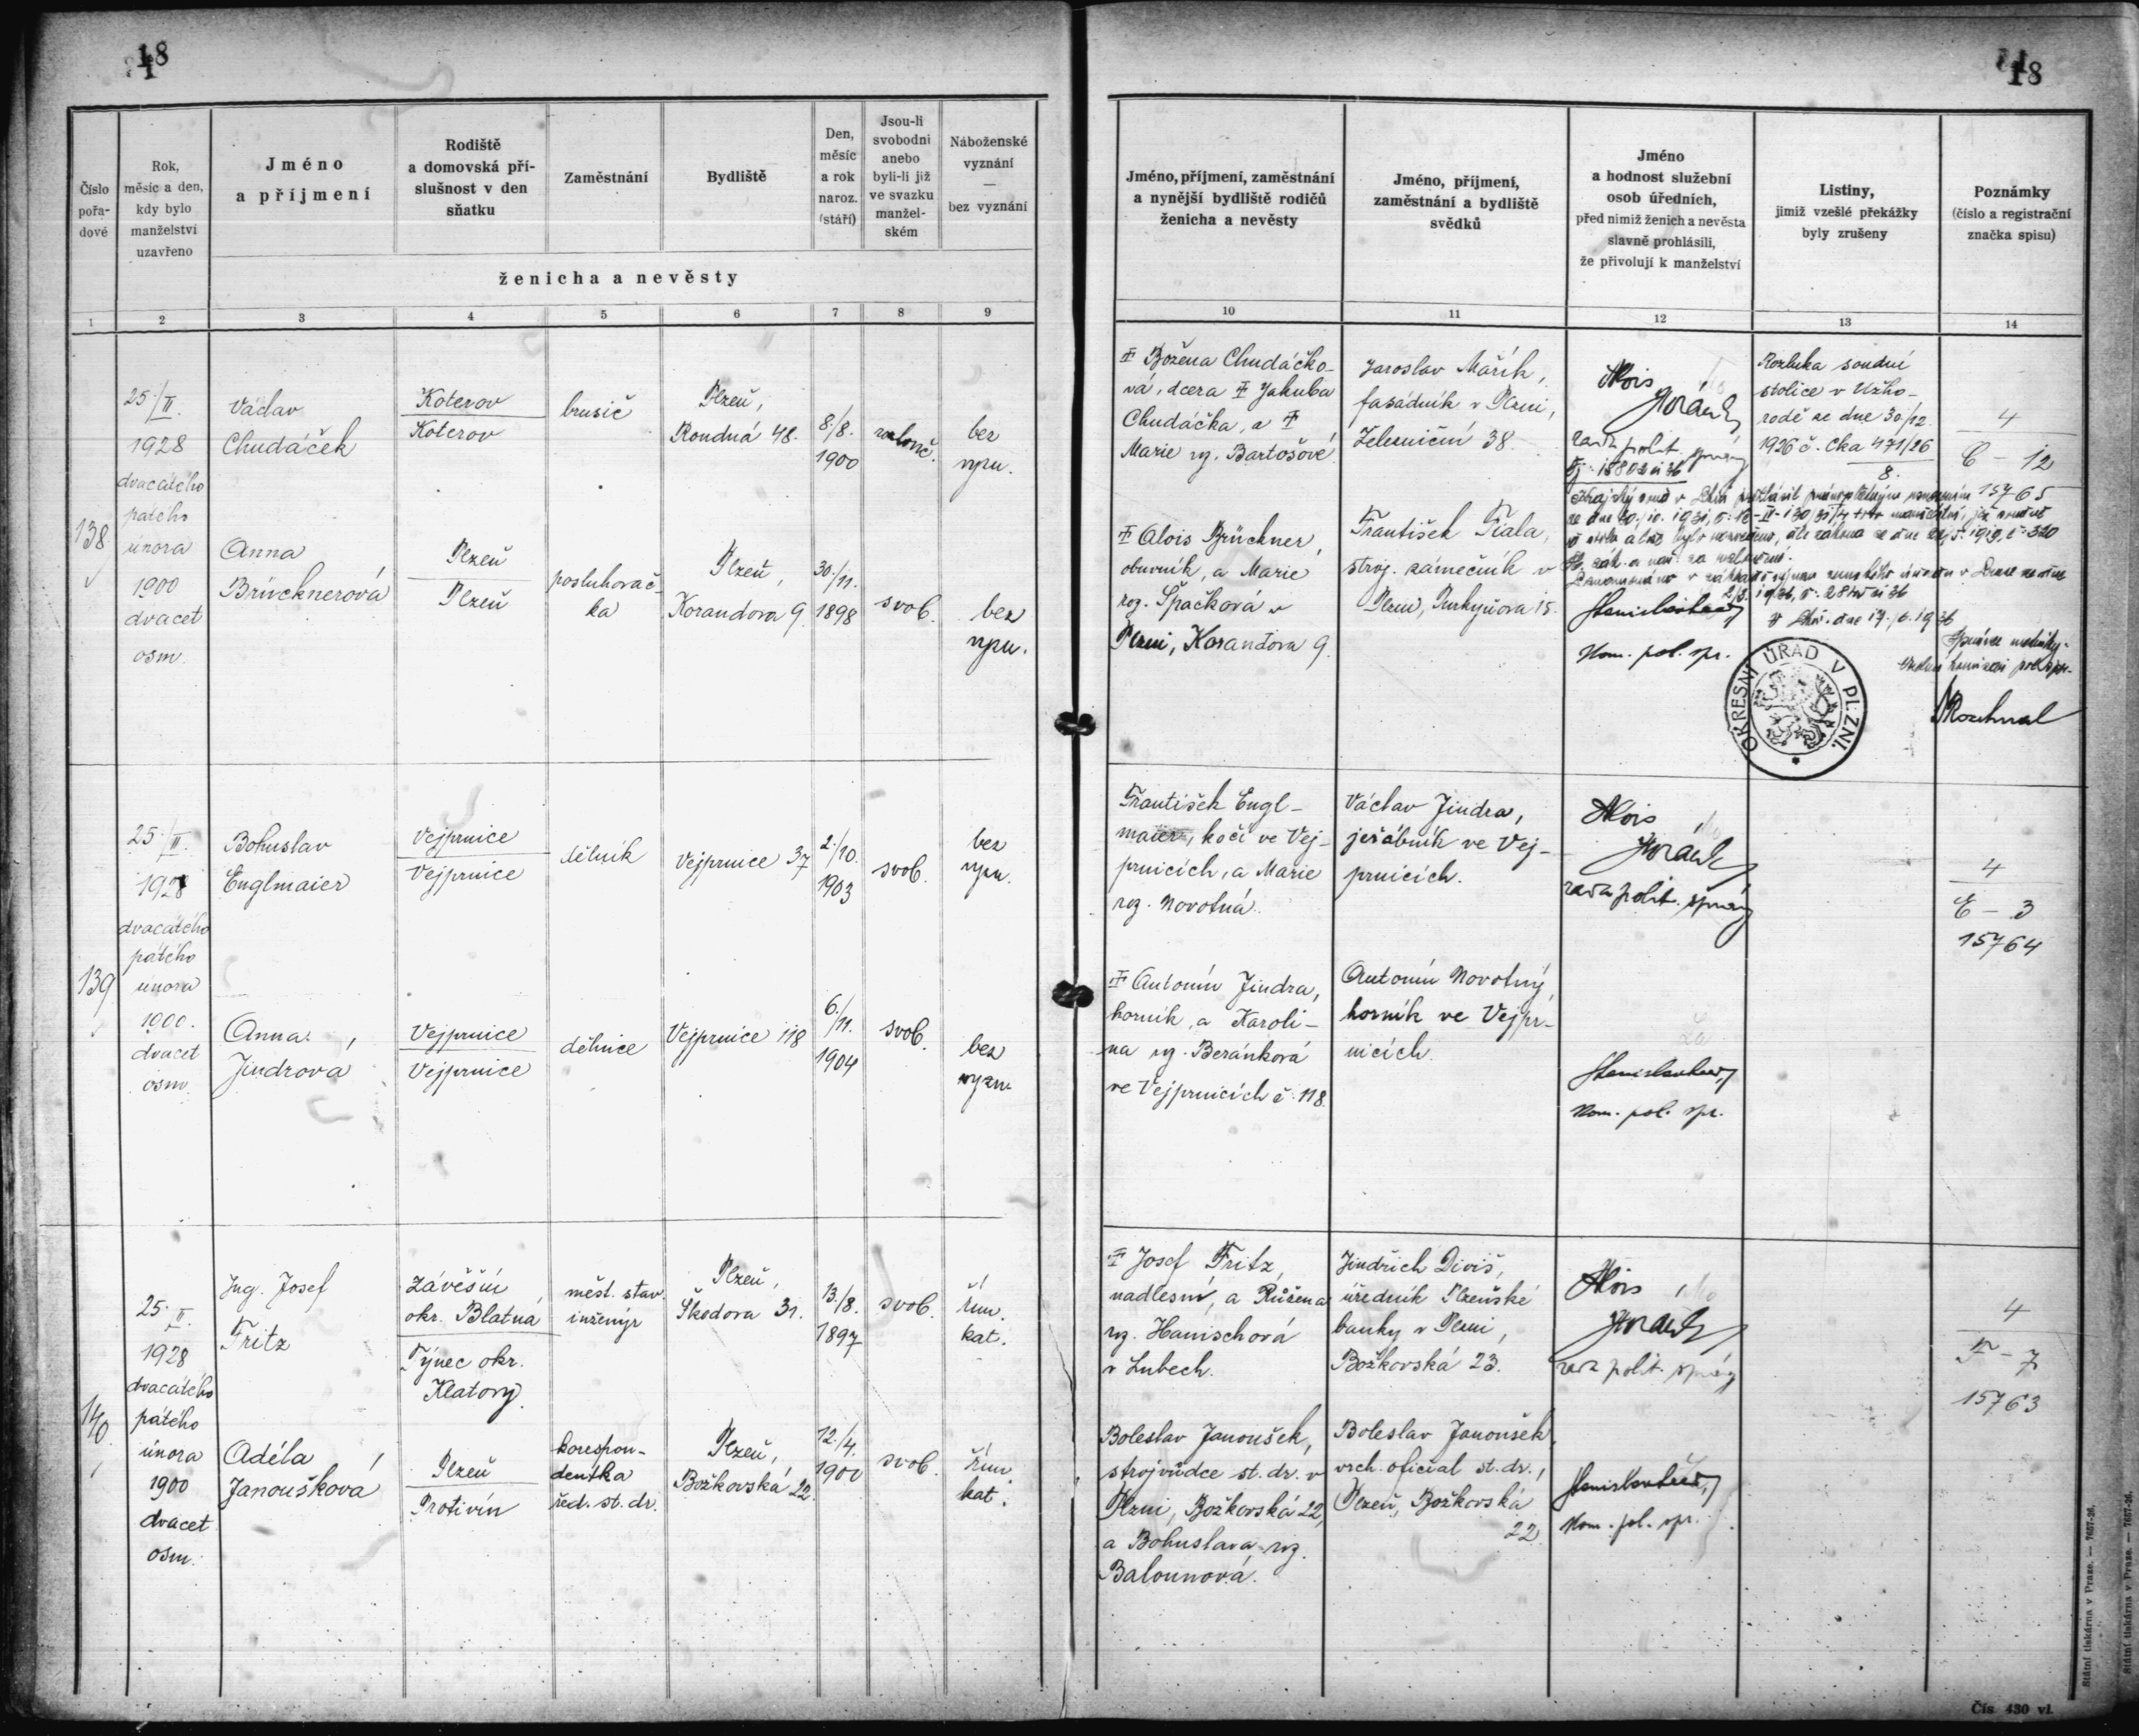 18
18
Číslo pořa-dové
Rok, měsíc a den, kdy bylo manželství uzavřeno
Jméno a příjmení
Rodiště a domovská pří-slušnost v den sňatku
Zaměstnání
Bydliště
Den, měsíc a rok naroz. (stáří)
Jsou-li svobodni anebo byli-li již ve svazku manžel-ském
Náboženské vyznání — bez vyznání
ženicha a nevěsty
Jméno, příjmení, zaměstnání a nynější bydliště rodičů ženicha a nevěsty
Jméno, příjmení, zaměstnání a bydliště svědků
Jméno a hodnost služební osob úředních, před nimiž ženich a nevěsta slavně prohlásili, že přivolují k manželství
Listiny, jimiž vzešlé překážky byly zrušeny
Poznámky (číslo a registrační značka spisu)
1 2 3 4 5 6 7 8 9 10 11 12 13 14
138
25./II.
1928
dvacátého
pátého
února
1900
dvacet
osm.
Václav
Chudáček
Koterov
Koterov
brusič
Plzeň,
Roudná 48.
8./8.
1900
rozlouč.
bez
vyzn.
Anna
Brücknerová
Plzeň
Plzeň
posluhovač-
ka
Plzeň,
Korandova 9.
30./11.
1898
svob.
bez
vyzn.
Božena Chudáčko-
vá, dcera Jakuba
Chudáčka, a
Marie roz. Bartošové
Alois Brückner,
obuvník, a Marie
roz. Špačková v
Plzni, Korandova 9.
Jaroslav Mařík,
fasádník v Plzni,
Železniční 38.
František Fiala,
stroj. zámečník v
Plzni, Purkyňova 15.
Alois
rada polit. správy
Kom. pol. spr.
Rozluka soudní
stolice v Užho-
rodě ze dne 30/12.
1926 č. Cka 471/26
8.
4
C - 12
15765
Krajský soud v
ze dne 30./10. 1931,
ze dne 1919, č. 320
v
dne 17./6. 1936
Správce matriky:
OKRESNÍ ÚŘAD V PLZNI.
139
25./II.
1928
dvacátého
pátého
února
1900.
dvacet
osm.
Bohuslav
Englmaier
Vejprnice
Vejprnice
dělník
Vejprnice 37
2./10.
1903
svob.
bez
vyzn.
Anna
Jindrová
Vejprnice
Vejprnice
dělnice
Vejprnice 118
6./11.
1904
svob.
bez
vyzn.
František Engl-
maier, kočí ve Vej-
prnicích, a Marie
roz. Novotná.
Antonín Jindra,
horník, a Karoli-
na roz. Beránková
ve Vejprnicích č. 118.
Václav Jindra,
jeřábník ve Vej-
prnicích.
Antonín Novotný,
horník ve Vejpr-
nicích.
Alois
rada polit. správy
Kom. pol. spr.
4
E - 3
15764
140
25./II.
1928
dvacátého
pátého
února
1900
dvacet
osm.
Ing. Josef
Fritz
Závěšín
okr. Blatná
Týnec okr.
Klatovy.
měst. stav.
inženýr
Plzeň,
Škodova 31.
13./8.
1897
svob.
řím.
kat.
Adéla
Janoušková
Plzeň
Protivín
korespon-
dentka
řed. st. dr.
Plzeň,
Božkovská 22.
12./4.
1900
svob.
řím.
kat.
Josef Fritz,
nadlesní, a Růžena
roz. Hanischová
v Lubech.
Boleslav Janoušek,
strojvůdce st. dr. v
Plzni, Božkovská 22,
a Bohuslava roz.
Balounová.
Jindřich Diviš,
úředník Plzeňské
banky v Plzni,
Božkovská 23.
Boleslav Janoušek,
vrch. oficial st. dr.,
Plzeň, Božkovská
22.
Alois
rada polit. správy
Kom. pol. spr.
4
F - 7
15763
Státní tiskárna v Praze. — 7657-26.
Státní tiskárna v Praze. — 7657-26.
Čís 430 vl.